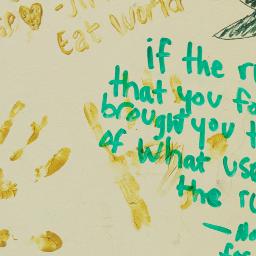 Eat World
if the r
that you fo
brought you t
of what use
the ru